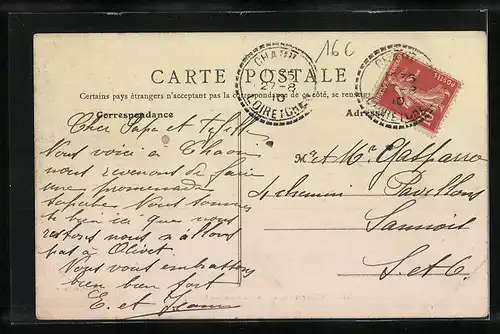 16 €
CARTE POSTALE
Certains pays étrangers n'acceptant pas la correspondance de ce côté, se renseigner
Correspondance
CHAON
27-8
10
LOIR ET CHER
POSTES
10
Cher Papa et
Vous voici à Chaon
nous revenons de faire
une promenade
superbe Nous sommes
si bien ici que nous
restons nous n'allons
pas à Olivet
Nous vous embrassons
bien bien fort
E. et Jeanne
Mr et Me Gasparro
4 chemin Pavillons
Sannois
S. et O.